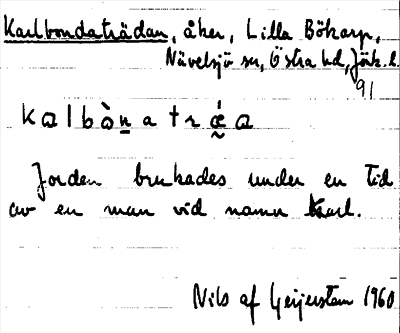 Karlbondaträdan, åker, Lilla Bökarp,
Nävelsjö sn, Östra hd, Jönk. l.
91
kalbò̱natrǽ̰a
Jorden brukades under en tid
av en man vid namn Karl.
Nils af Geijerstam 1960